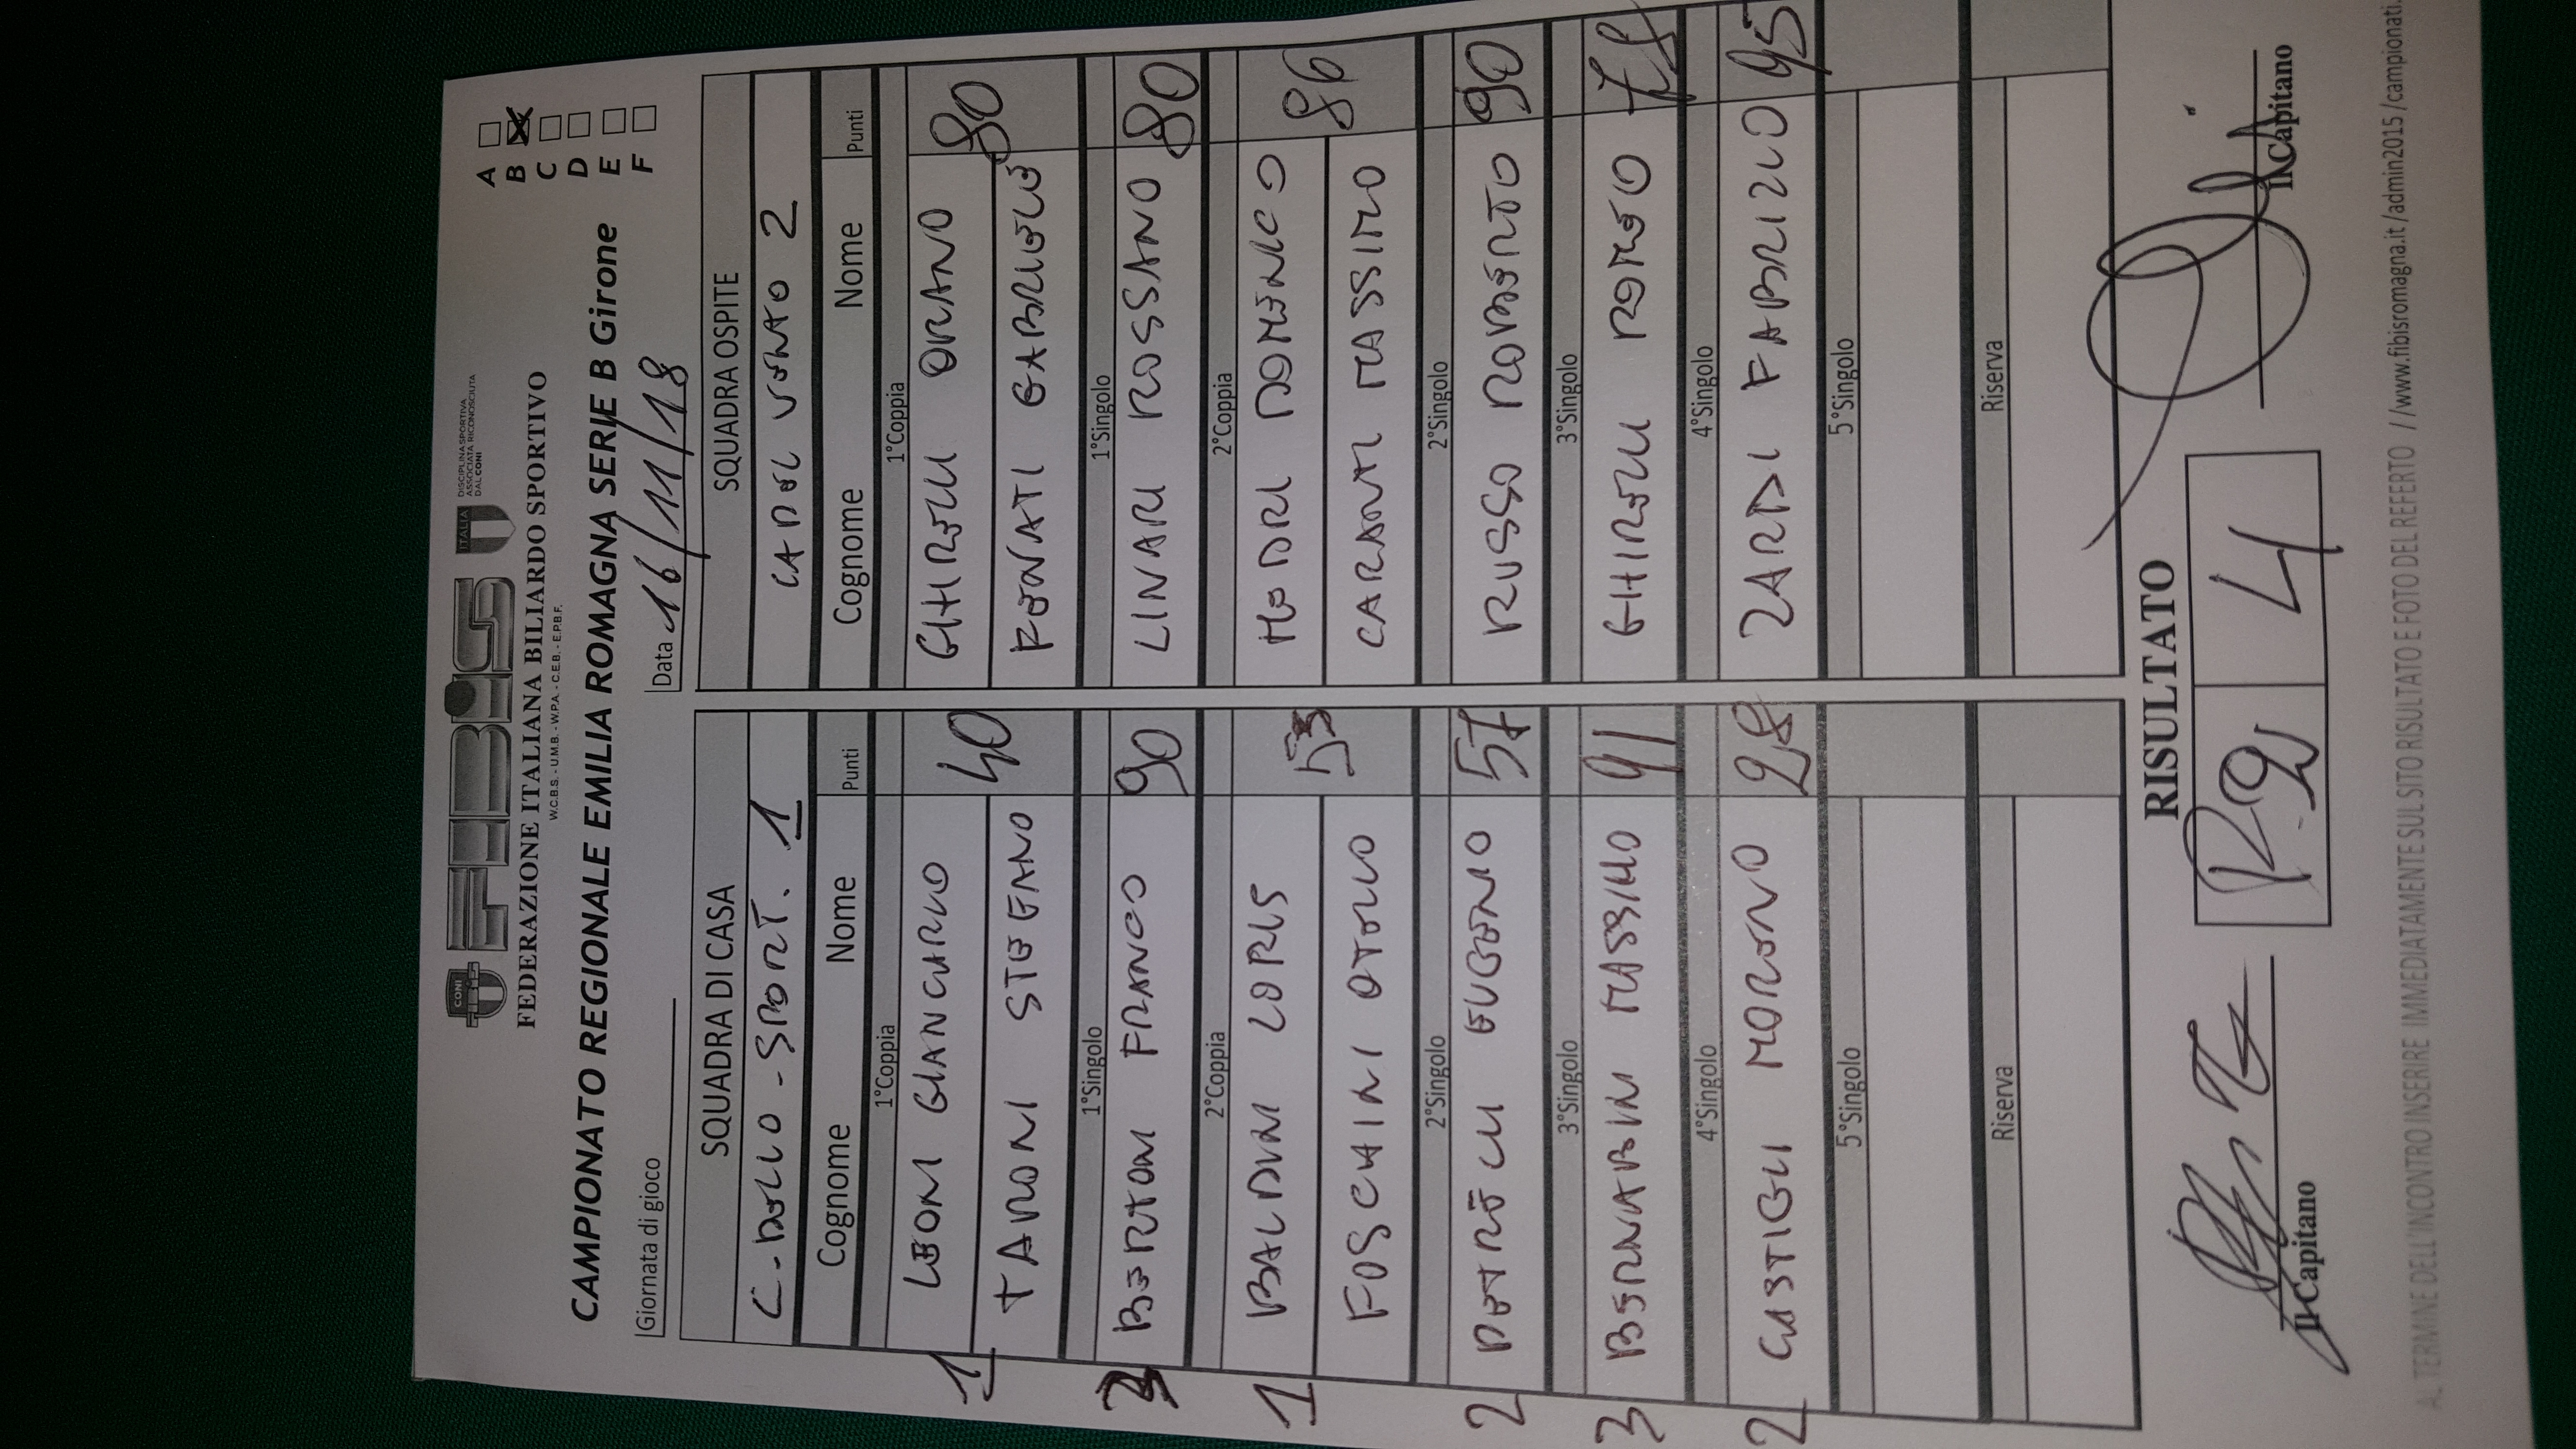 CONI
FIBiS
ITALIA
DISCIPLINA SPORTIVA
ASSOCIATA RICONOSCIUTA
DAL CONI
FEDERAZIONE ITALIANA BILIARDO SPORTIVO
W.C.B.S. - U.M.B. - W.P.A. - C.E.B. - E.P.B.F.
CAMPIONATO REGIONALE EMILIA ROMAGNA SERIE B Girone
A
B X
C
D
E
F
Giornata di gioco
Data 16/11/18
SQUADRA DI CASA
SQUADRA OSPITE
1
CA DEL VENTO 2
Cognome Nome Punti
Cognome Nome Punti
1°Coppia
1°Coppia
1 LEONI GIANCARLO 40
GHIRELLI ORIANO 80
TARONI STEFANO
GABRIELE
1°Singolo
1°Singolo
BERTONI FRANCO 90
LINARI ROSSANO 80
2°Coppia
2°Coppia
1 BALDINI LORIS 53
DOMENICO 86
FOSCHINI OTELLO
CARANTI MASSIMO
2°Singolo
2°Singolo
2 EUGENIO 57
RUSSO ROBERTO 90
3°Singolo
3°Singolo
3 MASSIMO 91
GHIRELLI ROMEO
4°Singolo
4°Singolo
2 MORENO 28
ZARDI FABRIZIO 95
5°Singolo
5°Singolo
Riserva
Riserva
RISULTATO
2 4
Il Capitano
Il Capitano
AL TERMINE DELL'INCONTRO INSERIRE IMMEDIATAMENTE SUL SITO RISULTATO E FOTO DEL REFERTO //www.fibisromagna.it/admin2015/campionati.